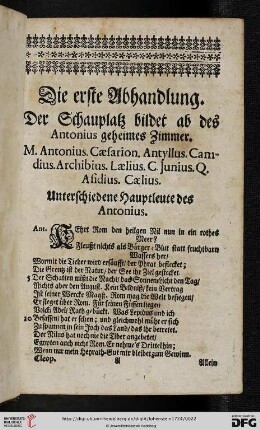 Die erste Abhandlung.
Der Schauplatz bildet ab des
Antonius geheimes Zimmer.
M. Antonius. Cæsarion. Antyllus. Cani-
dius. Archibius. Lælius. C. Junius. Q.
Asidius. Cælius.
Unterschiedene Hauptleute des
Antonius.
Ant. KEhrt Rom den heilgen Nil nun in ein rothes
Meer?
Fleußt nichts als Bürger-Blut statt fruchtbarn
Wassers her;
Wormit die Tieber wird ersäufft/ der Phrat beflecket;
Die Grentz ist der Natur/ der See ihr Ziel gestecket.
5 Der Schatten misst die Nacht; das Sonnenlicht den Tag/
Nichts aber den August. Kein Bündnüß/ kein Vertrag
Ist seiner Wercke Maaß. Rom mag die Welt besiegen/
Er sieget über Rom. Für seinen Füssen liegen
Volck Adel Rath gebückt. Was Lepidus und ich
10 Besessen/ hat er schon; und gleichwohl müht er sich
Zu spannen in sein Joch das Land/ das ihr betretet.
Der Milus hat noch nie die Tiber angebetet/
Egypten auch nicht Rom. Er mag sein Drittheil hin;
Wenn nur mein Heyrath-Gut mir bleibet zum Gewinn.
Cleop. A Allein
DFG